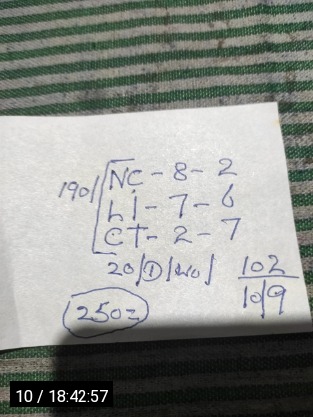 190/ NC - 8 - 2
LI - 7 - 6
CT - 2 - 7
20/① 
102
10/9
2502
10 / 18:42:57